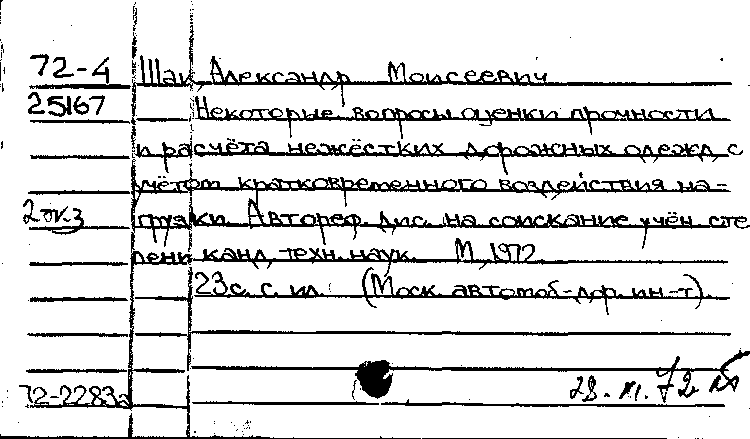 72-4 Шак, Александр Моисеевич
25167 Некоторые вопросы оценки прочности
и расчёта нежёстких дорожных одежд с
учётом кратковременного воздействия на-
2 экз грузки. Автореф. дис. на соискание учён. сте
пени канд. техн. наук. М., 1972.
23 с. с ил. (Моск. автомоб.-дор. ин-т).
72-2283а 28. XI. 72